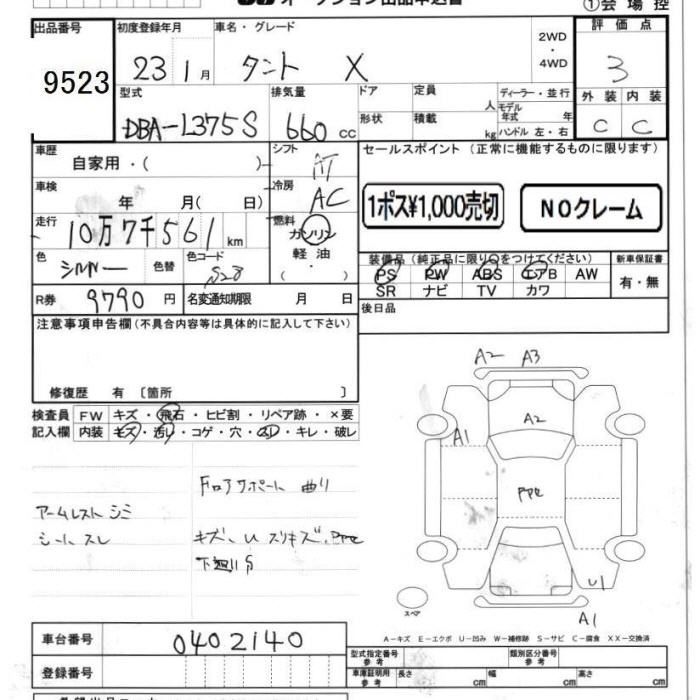 オークション出品申込書 ①会場控
出品番号 9523
初度登録年月 23 1月
車名・グレード タント X
2WD・4WD
評価点 3
型式 DBA-L375S
排気量 660 cc
ドア 形状
定員 人
積載 kg
ディーラー・並行
モデル年式 年
ハンドル 左・右
外装 内装
C C
車歴 自家用・( )
シフト AT
セールスポイント(正常に機能するものに限ります)
車検 年 月( 日)
冷房 AC
1ポス¥1,000売切 NOクレーム
走行 10万7千561km
燃料 ガソリン 軽油 ( ・ )
色 シルバー 色替
色コード S28
装備品(純正品に限り○をつけてください)
PS PW ABS エアB AW
SR ナビ TV カワ
新車保証書 有・無
R券 9790円
名変通知期限 月 日
後日品
注意事項申告欄(不具合内容等は具体的に記入して下さい)
修復歴 有 〔箇所 〕
検査員記入欄
FW キズ・飛石・ヒビ割・リペア跡・×要
内装 キズ・汚レ・コゲ・穴・スレ・キレ・破レ
アームレスト シミ
シート スレ
Fロアサポート 曲り
キズ、U スリキズ、PPe
下廻りS
A2 A3
A2
A1
PPe
U1
A1
スペア
A-キズ E-エクボ U-凹み W-補修跡 S-サビ C-腐食 XX-交換済
車台番号 0402140
登録番号
型式指定番号 参考
類別区分番号 参考
車庫証明用 参考 長さ cm 幅 cm 高さ cm